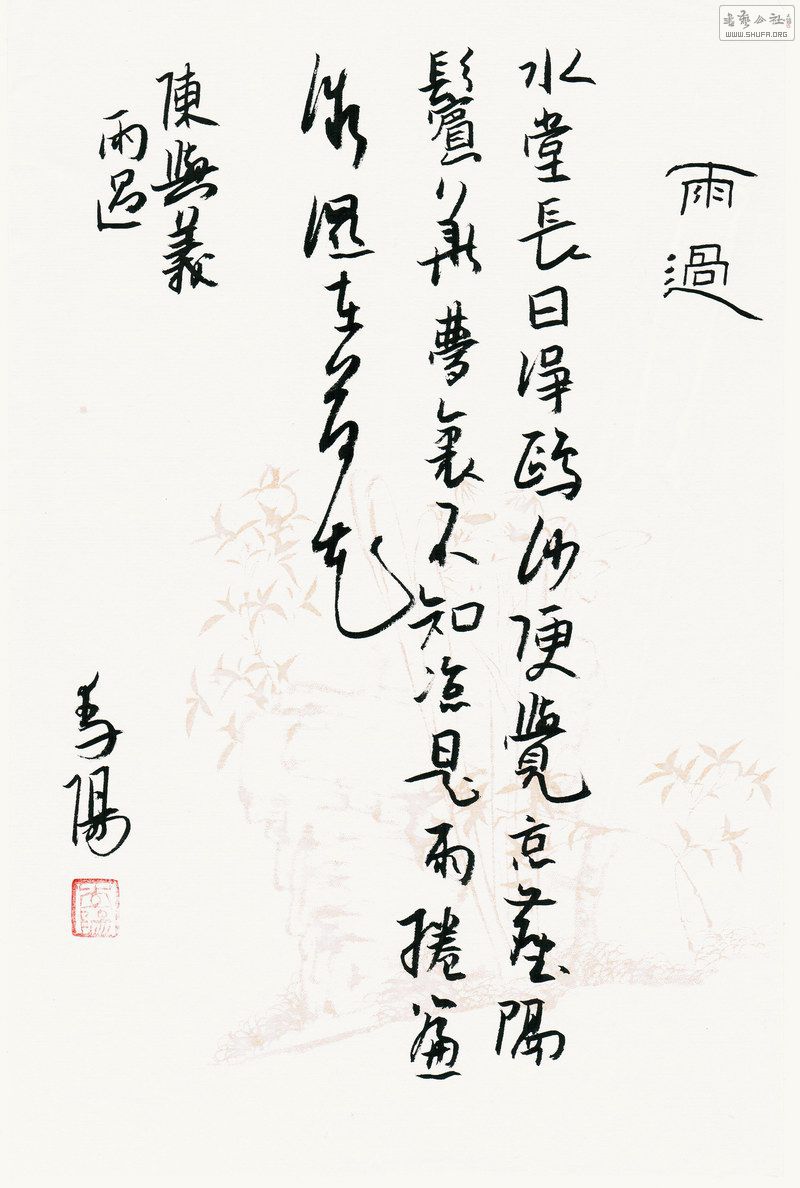 書藝公社
WWW.SHUFA.ORG
雨過
水堂長日淨鷗沙便覺京塵隔
鬢華夢裏不知涼是雨捲簾
微濕在荷花
陳與義
雨過
李陽